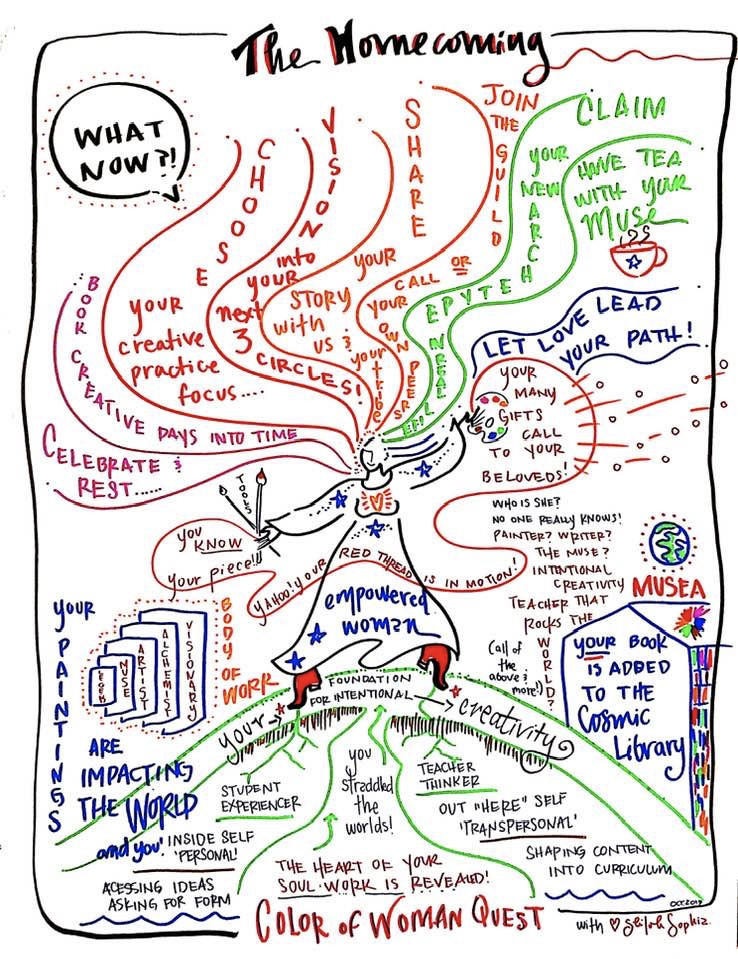 The Homecoming
WHAT
NOW?!
BOOK CREATIVE DAYS INTO TIME
CELEBRATE &
REST.....
CHOOSE
your
creative
practice
focus....
VISION
into
your
next
3
CIRCLES!
SHARE
your
STORY
with
us &
your tribe
JOIN
THE
GUILD
OR
CALL
YOUR
OWN
PEERS
CLAIM
your
NEW
ARCHETYPE
HAVE TEA
WITH your
muse
LET LOVE LEAD
YOUR PATH!
YOUR
MANY
GIFTS
CALL
TO YOUR
BELOVEDS!
TOOLS
you
KNOW
your piece!!
YAHOO! YOUR RED THREAD IS IN MOTION!
WHO IS SHE?
NO ONE REALLY KNOWS!
PAINTER? WRITER?
THE MUSE?
INTENTIONAL
CREATIVITY
TEACHER THAT
ROCKS THE
WORLD?
(all of
the
above &
more!)
MUSEA
YOUR BOOK
IS ADDED
TO THE
Cosmic
Library
empowered
woman
YOUR
PAINTINGS
MUSE
ARTIST
ALCHEMIST
VISIONARY
BODY
OF
WORK
ARE
IMPACTING
THE WORLD
and you!
your
FOUNDATION
FOR INTENTIONAL
creativity
STUDENT
EXPERIENCER
INSIDE SELF
'PERSONAL'
ACESSING IDEAS
ASKING FOR FORM
you
straddled
the
worlds!
TEACHER
THINKER
OUT "HERE" SELF
'TRANSPERSONAL'
SHAPING CONTENT
INTO CURRICULUM
THE HEART OF YOUR
SOUL·WORK IS REVEALED!
COLOR of WOMAN QUEST
with
OCT 2019